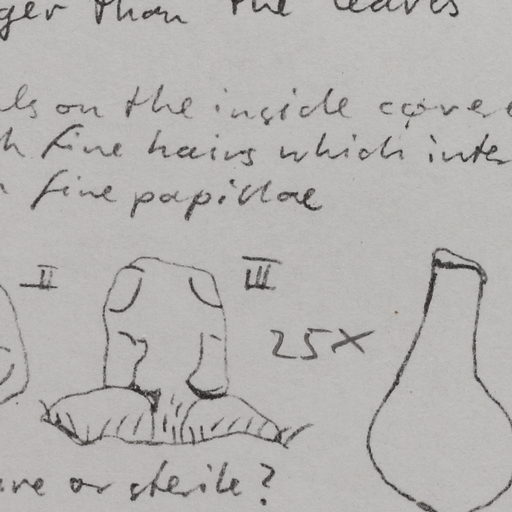 ger than the leaves
ls on the inside covere
h fine hairs which inte
fine papillae
II
III
25×
or sterile?